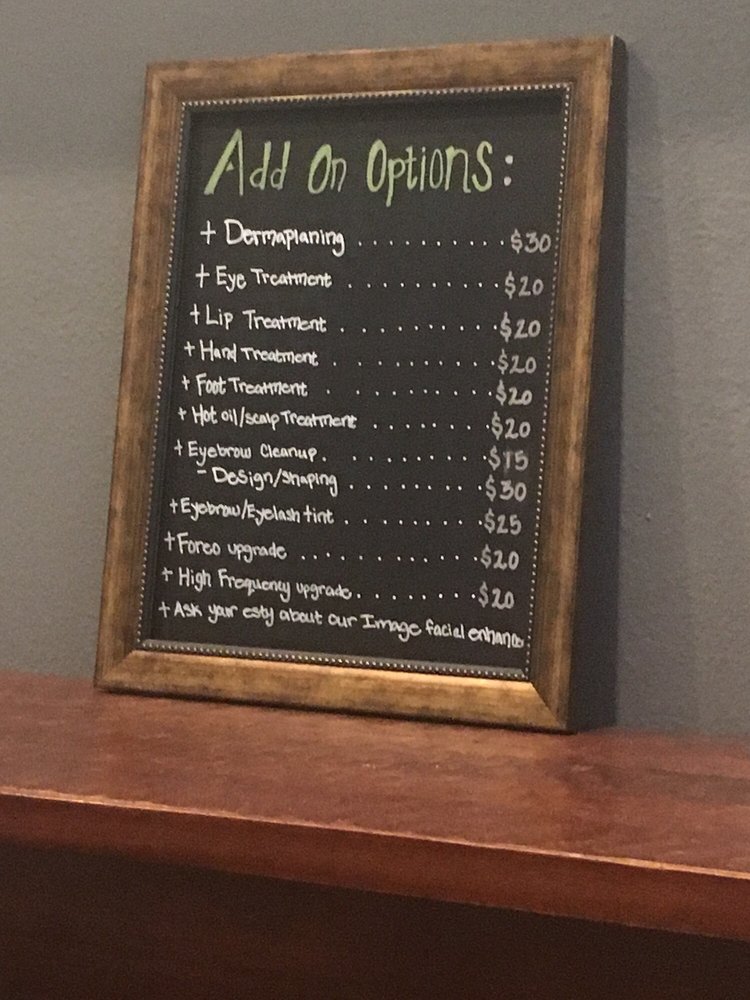 Add On Options:
+ Dermaplaning . . . . . . . . . . $30
+ Eye Treatment . . . . . . . . . . $20
+ Lip Treatment . . . . . . . . . . $20
+ Hand Treatment . . . . . . . . . . $20
+ Foot Treatment . . . . . . . . . . $20
+ Hot oil/scalp Treatment . . . . . . . . $20
+ Eyebrow Cleanup . . . . . . . . . . $15
- Design/Shaping . . . . . . . . . $30
+ Eyebrow/Eyelash tint . . . . . . . . . $25
+ Foreo upgrade . . . . . . . . . . . $20
+ High Frequency upgrade . . . . . . . . $20
+ Ask your esty about our Image facial